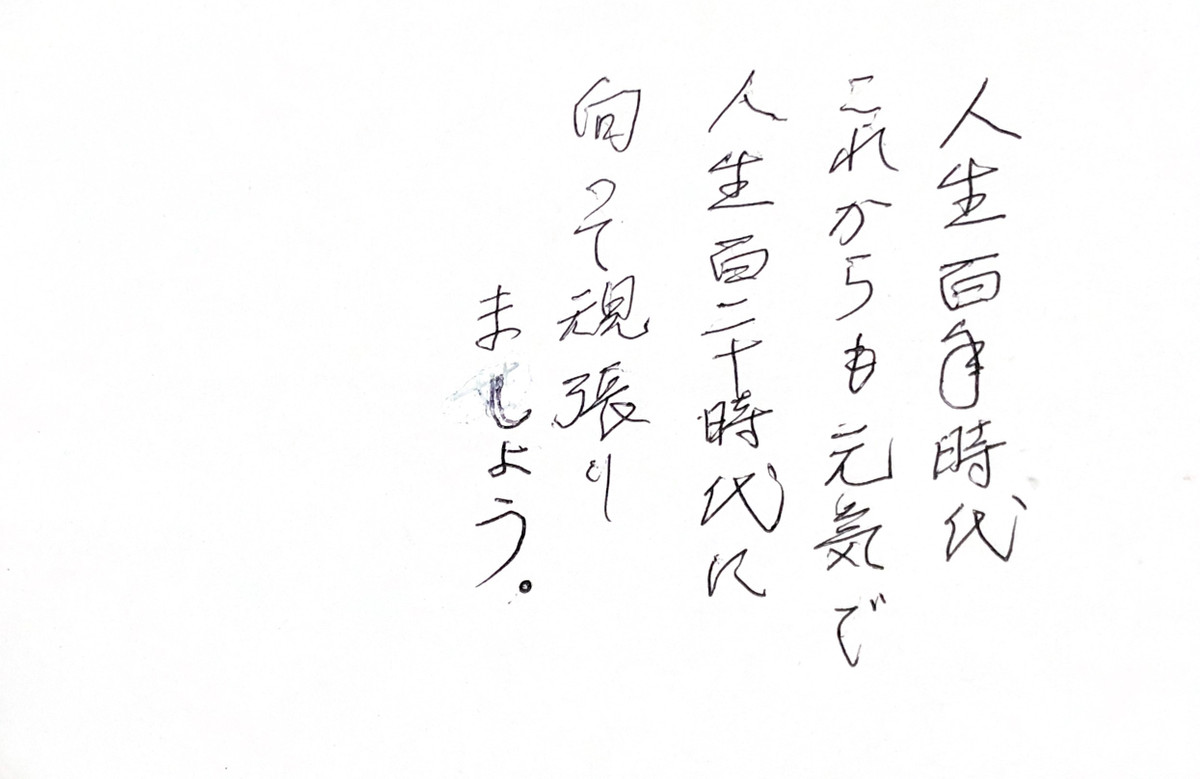 人生百年時代
これからも元気で
人生百二十時代に
向って頑張り
ましょう。